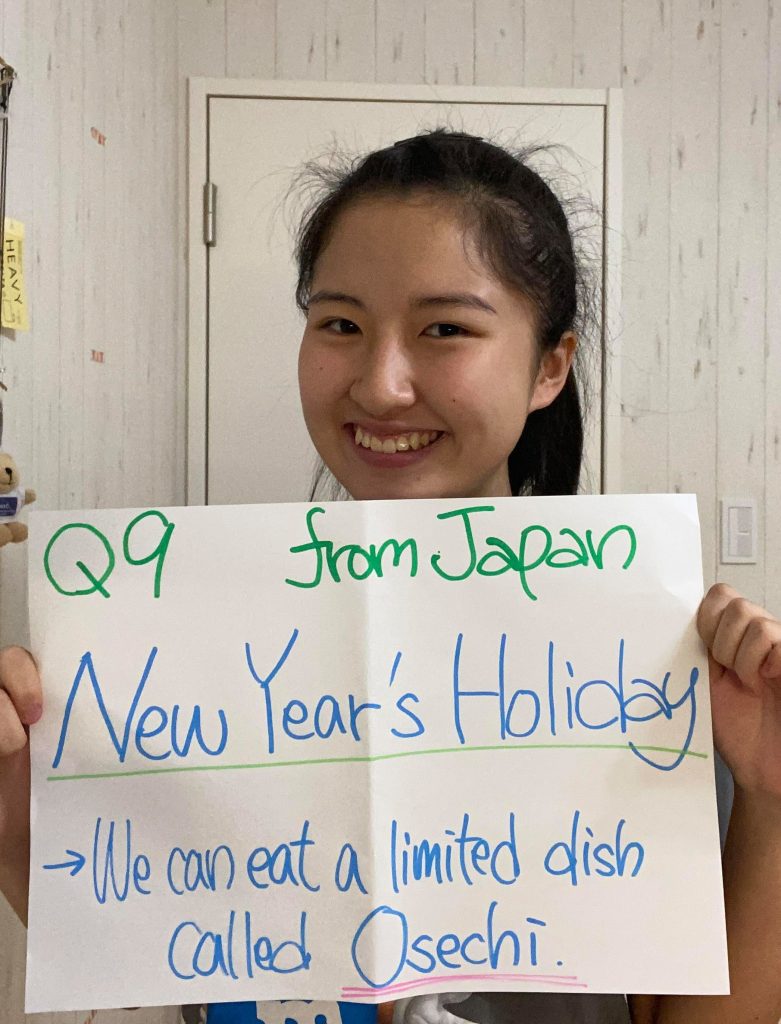 Q9 from Japan
New Year's Holiday
→We can eat a limited dish
called Osechi.
HEAVY